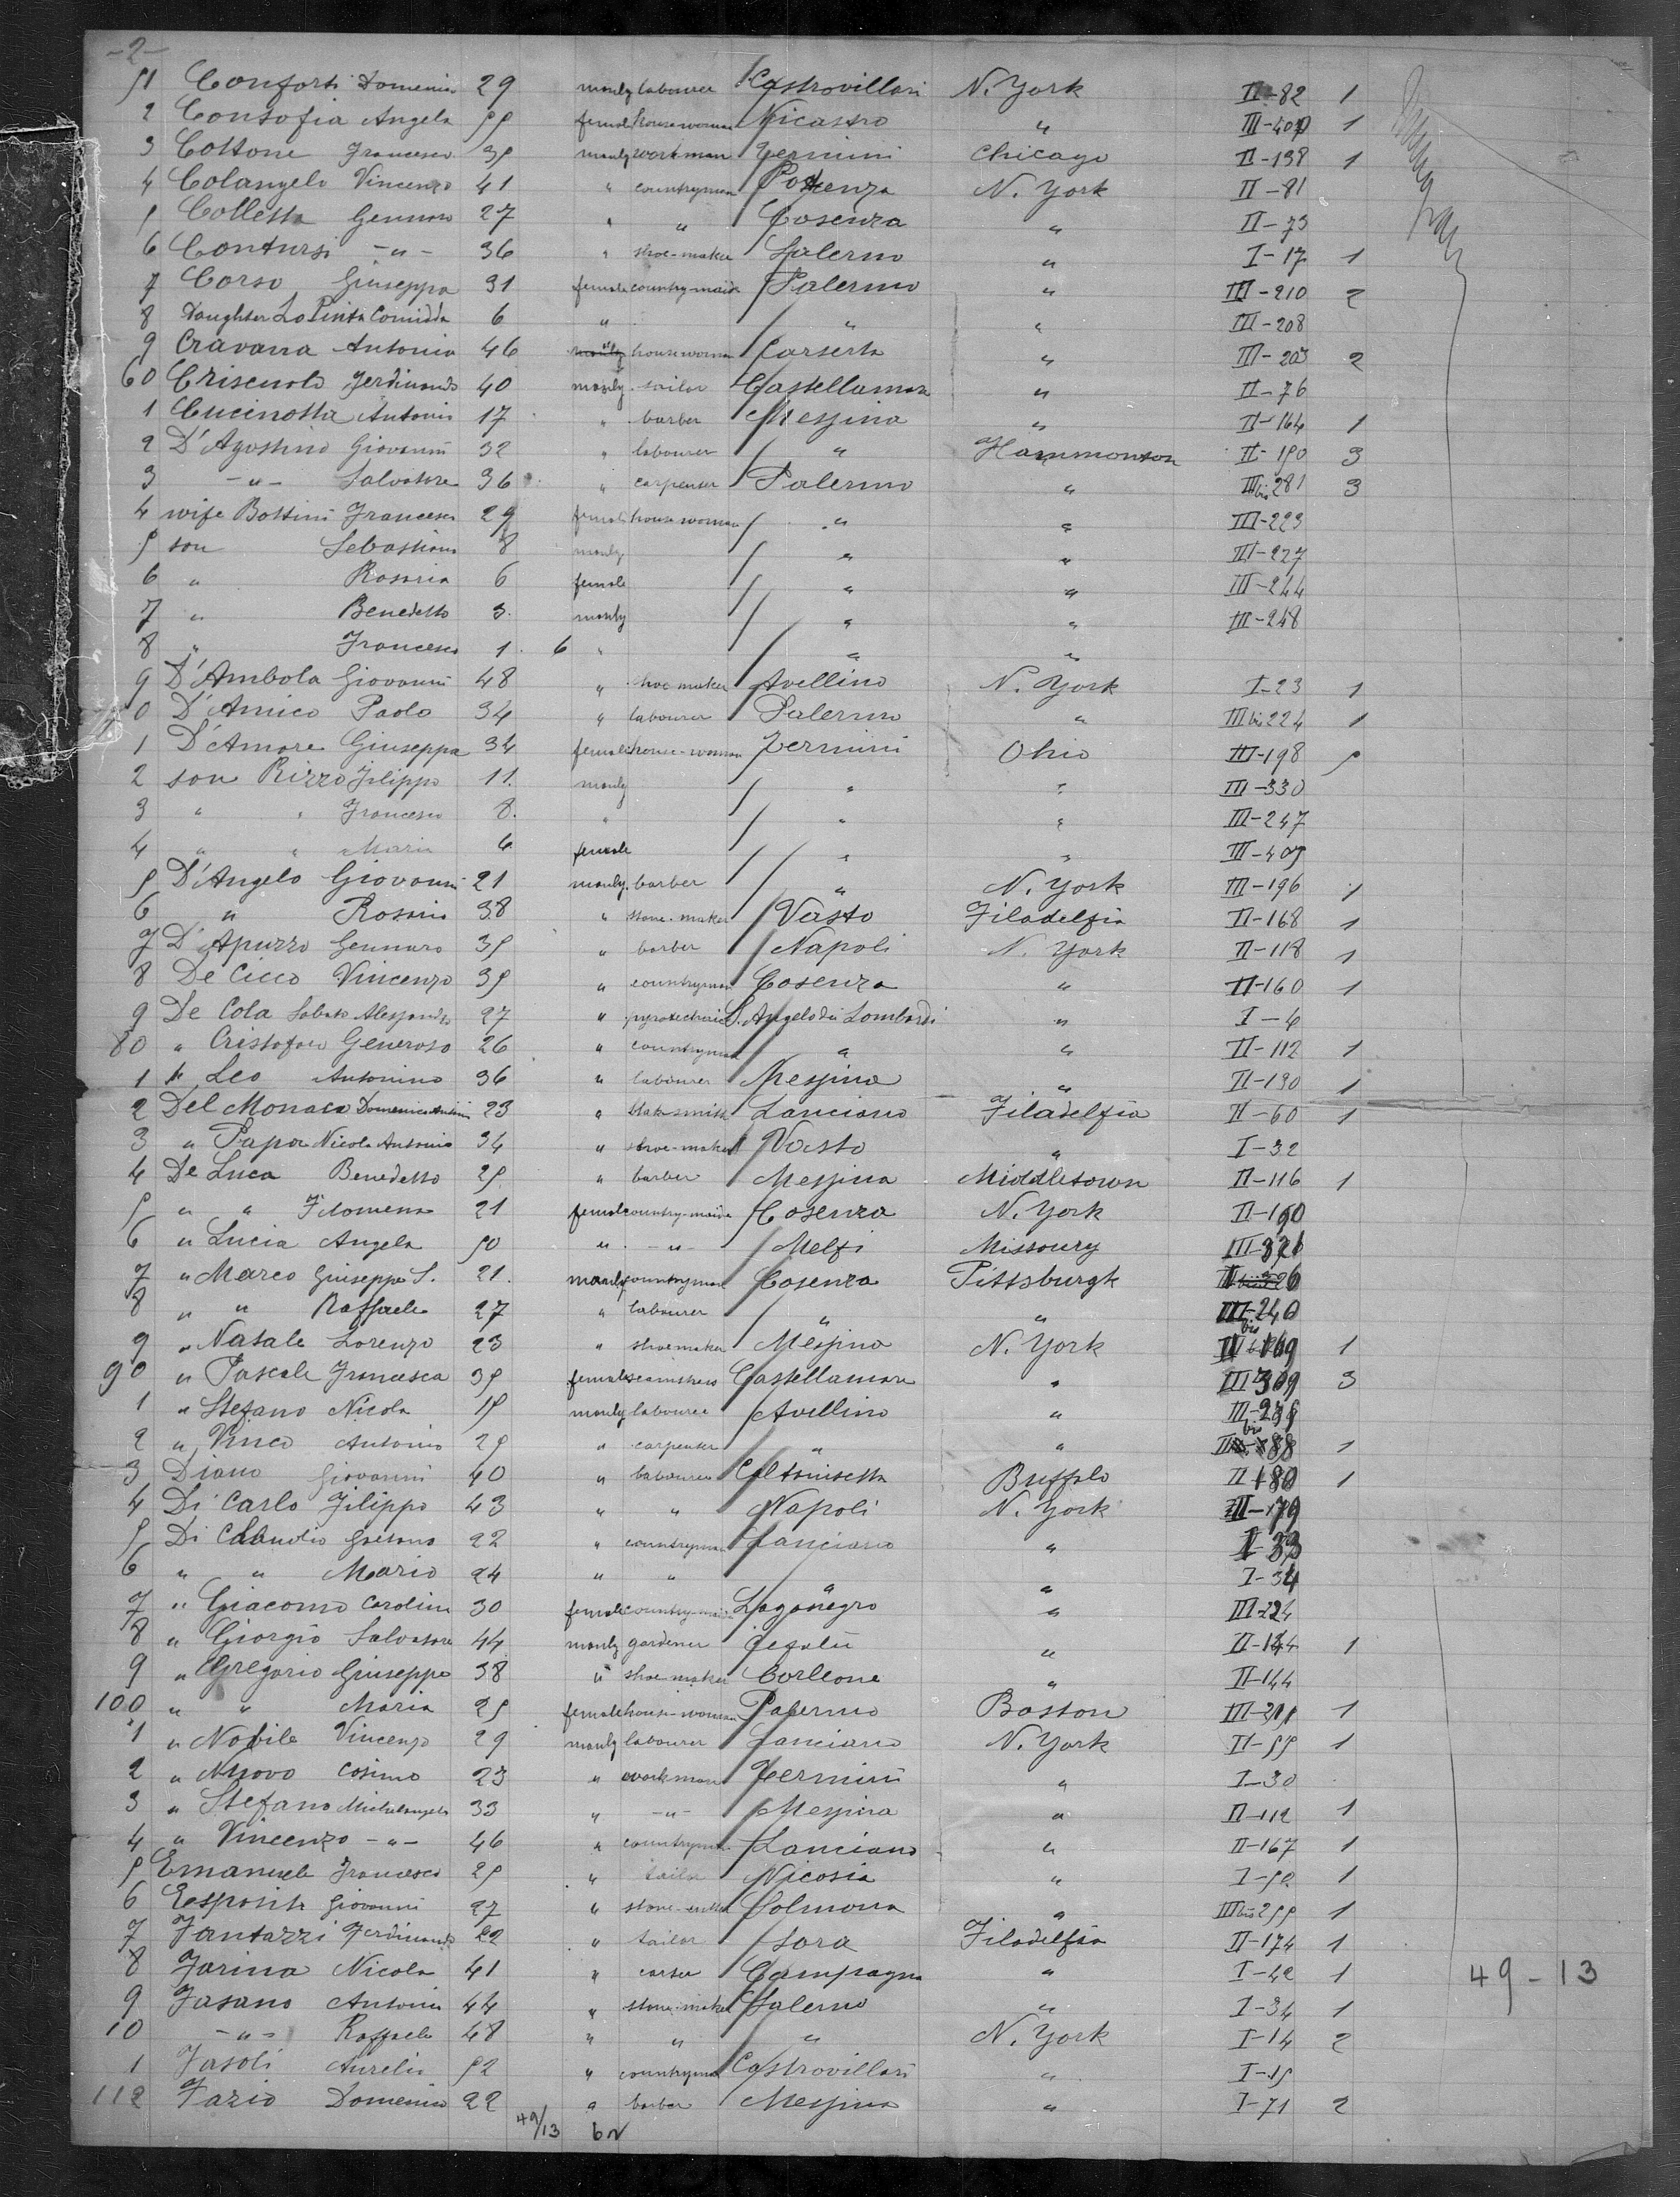 -2-
51 Conforti Domenico 29 manly labourer Castrovillari N. York II-82 1
2 Contofia Angela 55 female house woman Nicastro " III-407 1
3 Cottone Francesco 35 manly workman Termini Chicago II-138 1
4 Colangelo Vincenzo 41 " countryman Potenza N. York II-81
5 Colletta Gennaro 27 " " Cosenza " II-73
6 Contursi -"- 36 " shoe-maker Salerno " I-17 1
7 Corso Giuseppa 31 female country-maid Palermo " III-210 2
8 Daughter Lo Pinto 6 " " " III-208
9 Cravana Antonia 46 " house woman Caserta " III-203 2
60 Criscuolo Ferdinando 40 manly sailor Castellamare " II-76
1 Cucinotta Antonio 17 " barber Messina " II-164 1
2 D'Agostino Giovanni 32 " labourer " Hammonton II-150 3
3 -"- Salvatore 36 " carpenter Palermo " III bis 281 3
4 wife Bottini Francesca 29 female house woman " " III-223
5 son Sebastiano 8 manly " " III-227
6 " Rosaria 6 female " " III-244
7 " Benedetto 3 manly " " III-248
8 " Francesco 1 6 " " "
9 D'Ambola Giovanni 48 " shoe maker Avellino N. York I-23 1
0 D'Amico Paolo 34 " labourer Palermo " III bis 224 1
1 D'Amore Giuseppa 34 female house-woman Termini Ohio III-198 5
2 son Rizzo Filippo 11 manly " " III-330
3 " " Francesco 8 " " " III-247
4 " " Maria 6 female " " III-405
5 D'Angelo Giovanni 21 manly barber " N. York III-196 1
6 " Rosario 38 " stone-maker Vasto Filadelfia II-168 1
7 D'Apuzzo Gennaro 35 " barber Napoli N. York II-118 1
8 De Cicco Vincenzo 35 " countryman Cosenza " II-160 1
9 De Cola Sabato Alessandro 27 " pyrotechnic S. Angelo dei Lombardi " I-4
80 " Cristofaro Generoso 26 " countryman " " II-112 1
1 " Leo Antonino 36 " labourer Messina " II-130 1
2 Del Monaco Domenico Antonio 23 " blaksmith Lanciano Filadelfia II-60 1
3 " Papa Nicola Antonio 34 " shoe-maker Vasto " I-32
4 De Luca Benedetto 25 " barber Messina Middletown II-116 1
5 " " Filomena 21 female country-maid Cosenza N. York II-190
6 " Lucia Angela 50 " -"- Melfi Missoury III-321
7 " Marco Giuseppe S. 21 manly countryman Cosenza Pittsburgk
8 " " Raffaele 27 " labourer " " III-240
9 " Natale Lorenzo 23 " shoemaker Messina N. York bis 169 1
90 " Pascale Francesca 35 female seamstress Castellamare " III 309 3
1 " Stefano Nicola 15 manly labourer Avellino "
2 " Vinco Antonio 25 " carpenter " " bis 88 1
3 Diano Giovanni 40 " labourer Caltanissetta Buffalo II 180 1
4 Di Carlo Filippo 43 " " Napoli N. York II-179
5 Di Claudio Gaetano 22 " countryman Lanciano " I-33
6 " " Mario 24 " " " " I-34
7 " Giacomo Carolina 30 female country-maid Lagonegro " III-224
8 " Giorgio Salvatore 44 manly gardener Cefalù " II-144 1
9 " Gregorio Giuseppe 38 " shoe maker Corleone " II-144
100 " " Maria 25 female house-woman Palermo Boston III-211 1
1 " Nobile Vincenzo 29 manly labourer Lanciano N. York II-55 1
2 " Nuovo Cosimo 23 " workman Termini " I-30
3 " Stefano Michelangelo 33 " -"- Messina " II-112 1
4 " Vincenzo -"- 46 " countryman Lanciano " II-167 1
5 Emanuele Francesco 25 " tailor Nicosia " I-50 1
6 Eesposito Giovanni 27 " stone-cutter Solmona " III bis 255 1
7 Fantazzi Ferdinando 22 " tailor Sora Filadelfia II-174 1
8 Farina Nicola 41 " carter Campagna " I-42 1
9 Fasano Antonio 44 " stone-maker Salerno " I-34 1
10 -"- Raffaele 48 " " " N. York I-14 2
1 Fasoli Aurelio 52 " countryman Castrovillari " I-15
112 Fazio Domenico 22 " barber Messina " I-71 2
49-13
49/13 62